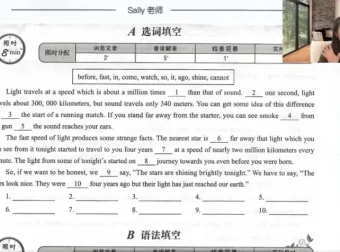 Sally 老师
A 选词填空
限时
8 min
限时分配
浏览文章
查词解答
检查回看
2'
5'
1'
before, fast, in, come, watch, so, it, ago, shine, cannot
Light travels at a speed which is about a million times 1 than that of sound. 2 one second, light
vels about 300, 000 kilometers, but sound travels only 340 meters. You can get some idea of this difference
3 the start of a running match. If you stand far away from the starter, you can see smoke 4 from
gun 5 the sound reaches your ears.
The fast speed of light produces some strange facts. The nearest star is 6 far away that light which you
see from it tonight started to travel to you four years 7 at a speed of nearly two million kilometers every
nute. The light from some of tonight's started on 8 journey towards you even before you were born.
So, if we want to be honest, we 9 say, "The stars are shining brightly tonight." We have to say, "The
rs look nice. They were 10 four years ago but their light has just reached our earth."
1. 2. 3. 4. 5.
6. 7. 8. 9. 10.
B 语法填空
限时